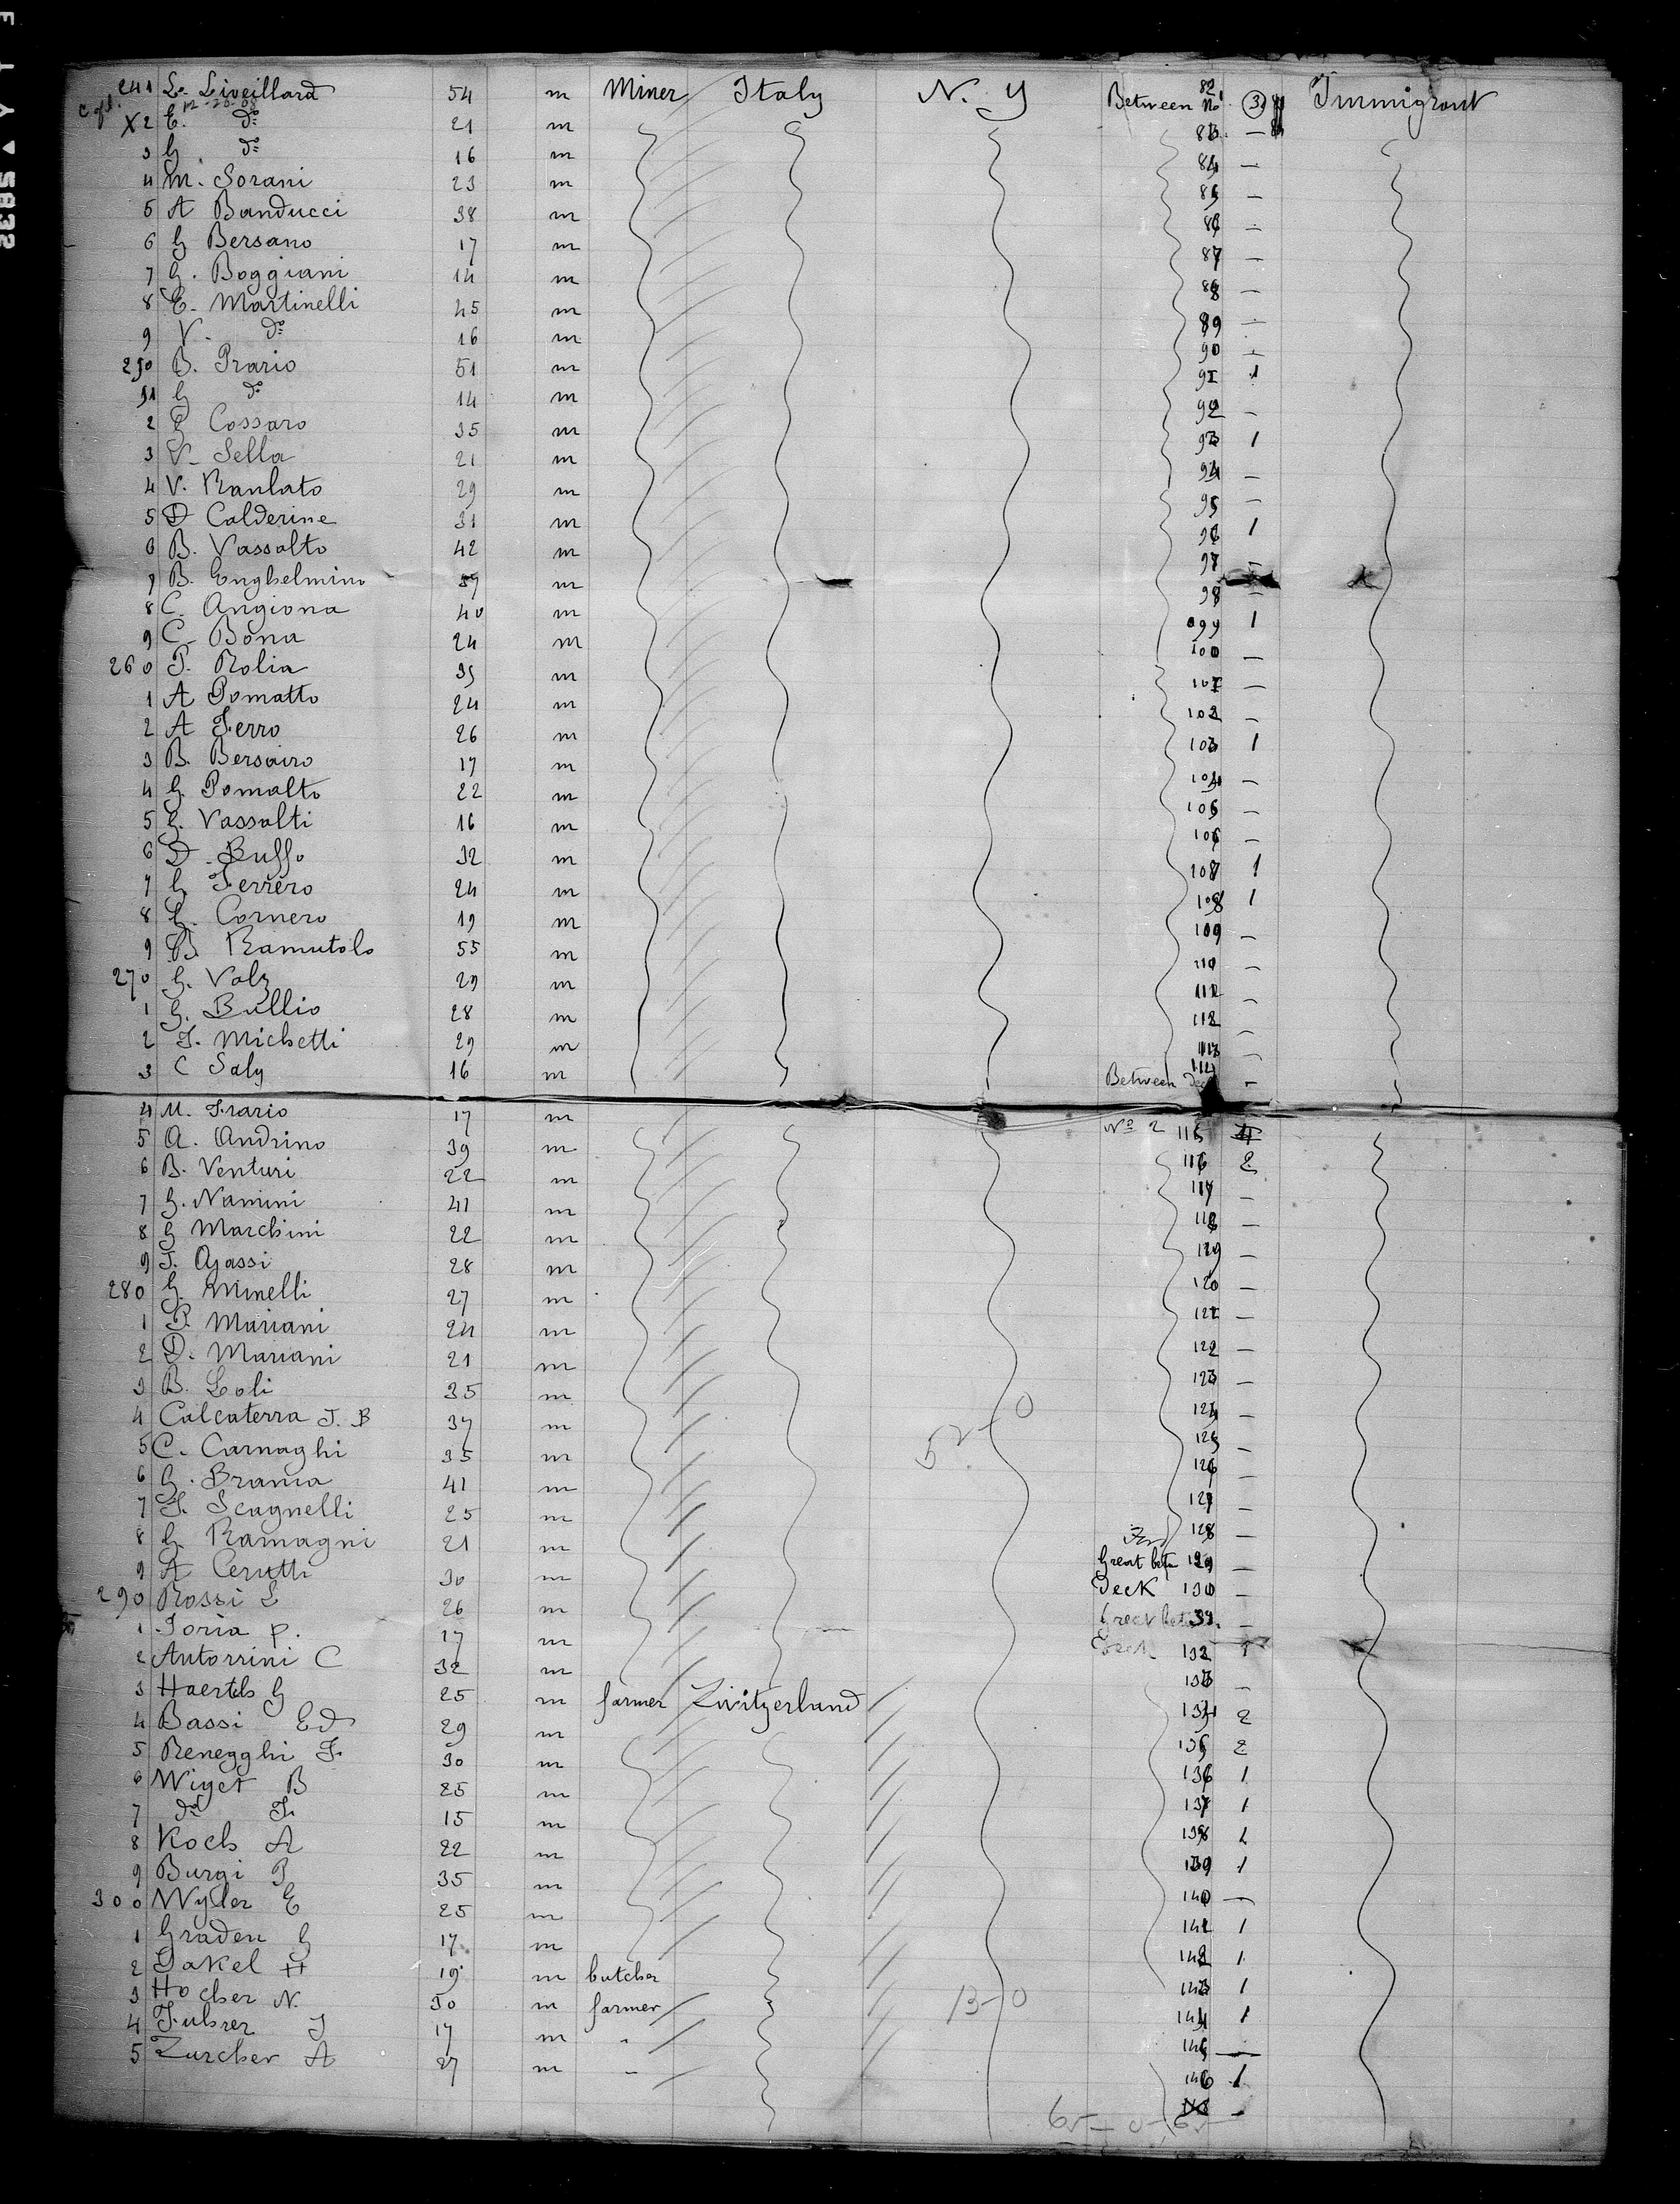 241 L. Liveillard 54 m Miner Italy N. Y Between No 82 3 Immigrant
X2 E. do 21 m 83 —
3 G. do 16 m 84 —
4 M. Sorani 23 m 85 —
5 A Banducci 38 m 86 —
6 G Bersano 17 m 87 —
7 G. Boggiani 14 m 88 —
8 E. Martinelli 45 m 89 —
9 V. do 16 m 90 —
250 B. Prario 51 m 91 1
51 G do 14 m 92 —
2 Cossaro 35 m 93 1
3 V. Sella 21 m 94 —
4 V. Ranlato 29 m 95 —
5 D Calderine 31 m 96 1
6 B. Vassalto 42 m 97 —
7 B. Enghelmino m 98 —
8 C. Angiona 40 m 99 1
9 C. Bona 24 m 100 —
260 P. Rolia 35 m 101 —
1 A Pomatto 24 m 102 —
2 A Ferro 26 m 103 1
3 B. Bersairo 17 m 104 —
4 G. Pomalto 22 m 105 —
5 G. Vassalti 16 m 106 —
6 D. Buffo 32 m 107 1
7 G Ferrero 24 m 108 1
8 G. Cornero 19 m 109 —
9 B. Ramutolo 55 m 110 —
270 G. Valz 29 m 111 —
1 G. Bullio 28 m 112 —
2 F. Michetti 29 m 113 —
3 C Saly 16 m Between 114 —
4 M. Frario 17 m No 2 115
5 A. Andrino 39 m 116 2
6 B. Venturi 22 m 117 —
7 G. Nannini 41 m 118 —
8 G Marchini 22 m 119 —
9 F. Ajassi 28 m 120 —
280 G. Minelli 27 m 121 —
1 P. Mariani 24 m 122 —
2 D. Mariani 21 m 123 —
3 B. Loli 35 m 124 —
4 Calcaterra J. B 37 m 125 —
5 C. Carnaghi 35 m 52 - 0 126 —
6 G. Brania 41 m 127 —
7 F. Scagnelli 25 m 128 —
8 G. Ramagni 21 m Great betn 129 —
9 A Cerutti 30 m Deck 130 —
290 Rossi L 26 m Great 131 —
1 Foria P. 17 m 132 1
2 Antorrini C 32 m 133 —
3 Haertls G 25 m farmer Zwitzerland 134 2
4 Bassi Ed 29 m 135 2
5 Renegghi F. 30 m 136 1
6 Wiget B 25 m 137 1
7 do F. 15 m 138 1
8 Koch A 22 m 139 1
9 Burgi P 35 m 140 —
300 Wyler E 25 m 141 1
1 Graden G 17 m 142 1
2 Dakel H 19 m butcher 143 1
3 Hocher N. 30 m farmer 13 - 0 144 1
4 Fuhrer J 17 m " 145 —
5 Zurcher A 27 m " 146 1
65 - 0 - 65